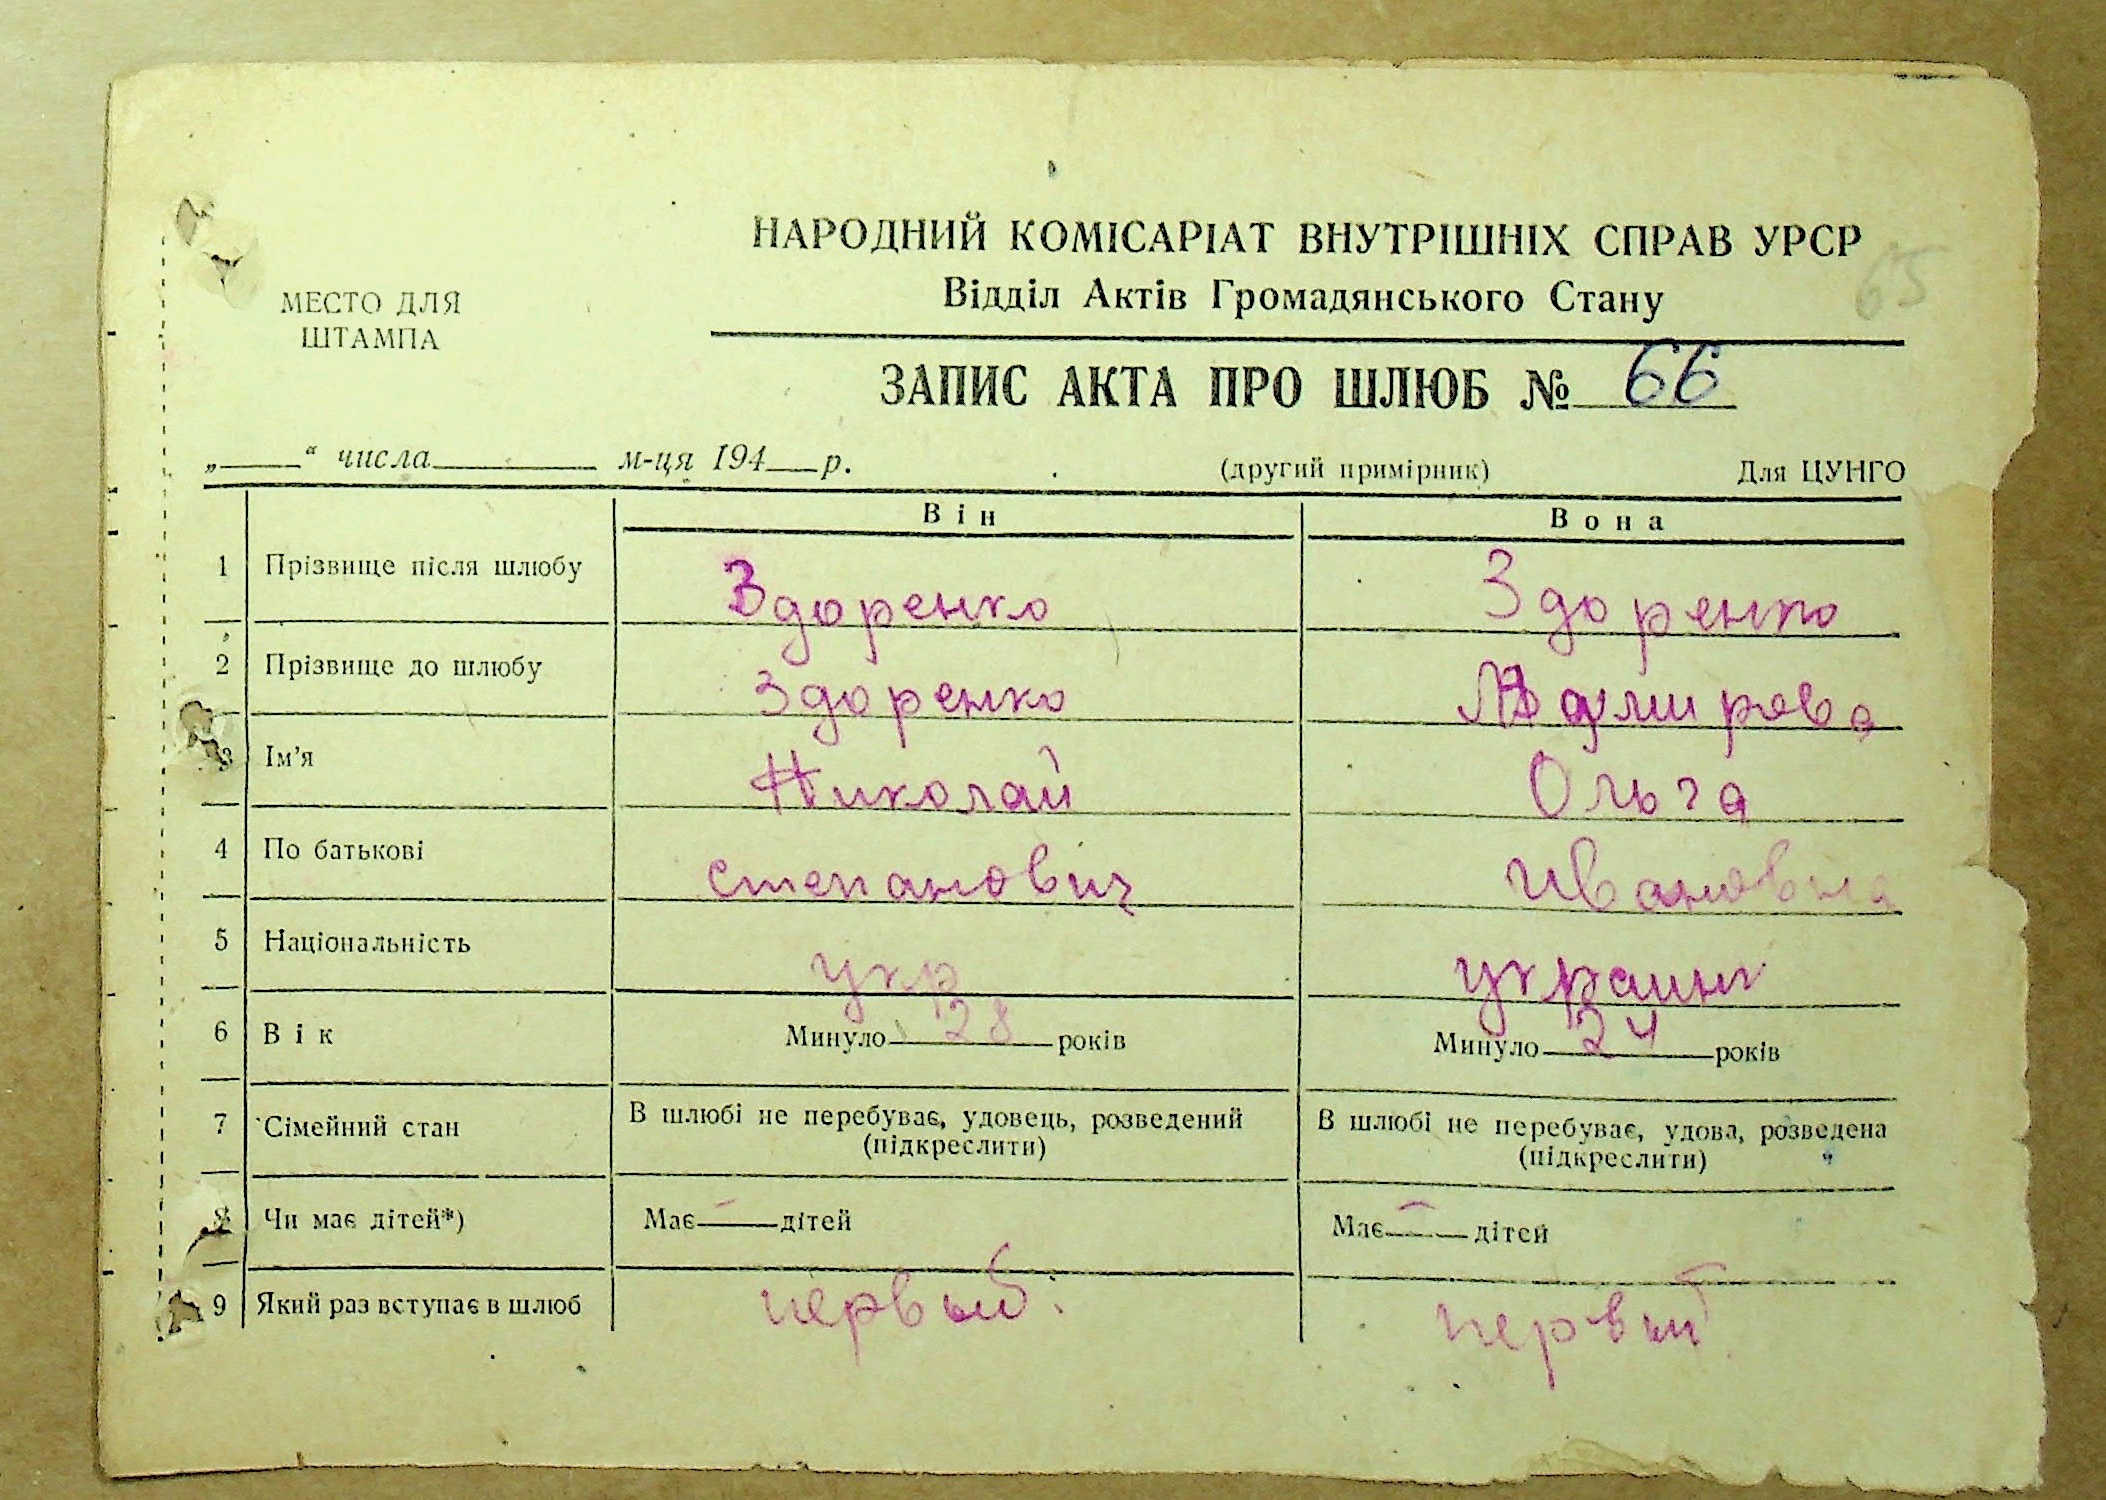 НАРОДНИЙ КОМІСАРІАТ ВНУТРІШНІХ СПРАВ УРСР
Відділ Актів Громадянського Стану
65
МЕСТО ДЛЯ
ШТАМПА
ЗАПИС АКТА ПРО ШЛЮБ № 66
„ “ числа м-ця 194 р. (другий примірник) Для ЦУНГО
Він Вона
1 Прізвище після шлюбу Здоренко Здоренко
2 Прізвище до шлюбу Здоренко
3 Ім'я Николай Ольга
4 По батькові степанович Ивановна
5 Національність укр украинк
6 Вік Минуло 28 років Минуло 24 років
7 Сімейний стан В шлюбі не перебуває, удовець, розведений В шлюбі не перебуває, удова, розведена
(підкреслити) (підкреслити)
8 Чи має дітей*) Має — дітей Має — дітей
9 Який раз вступає в шлюб первый. первый